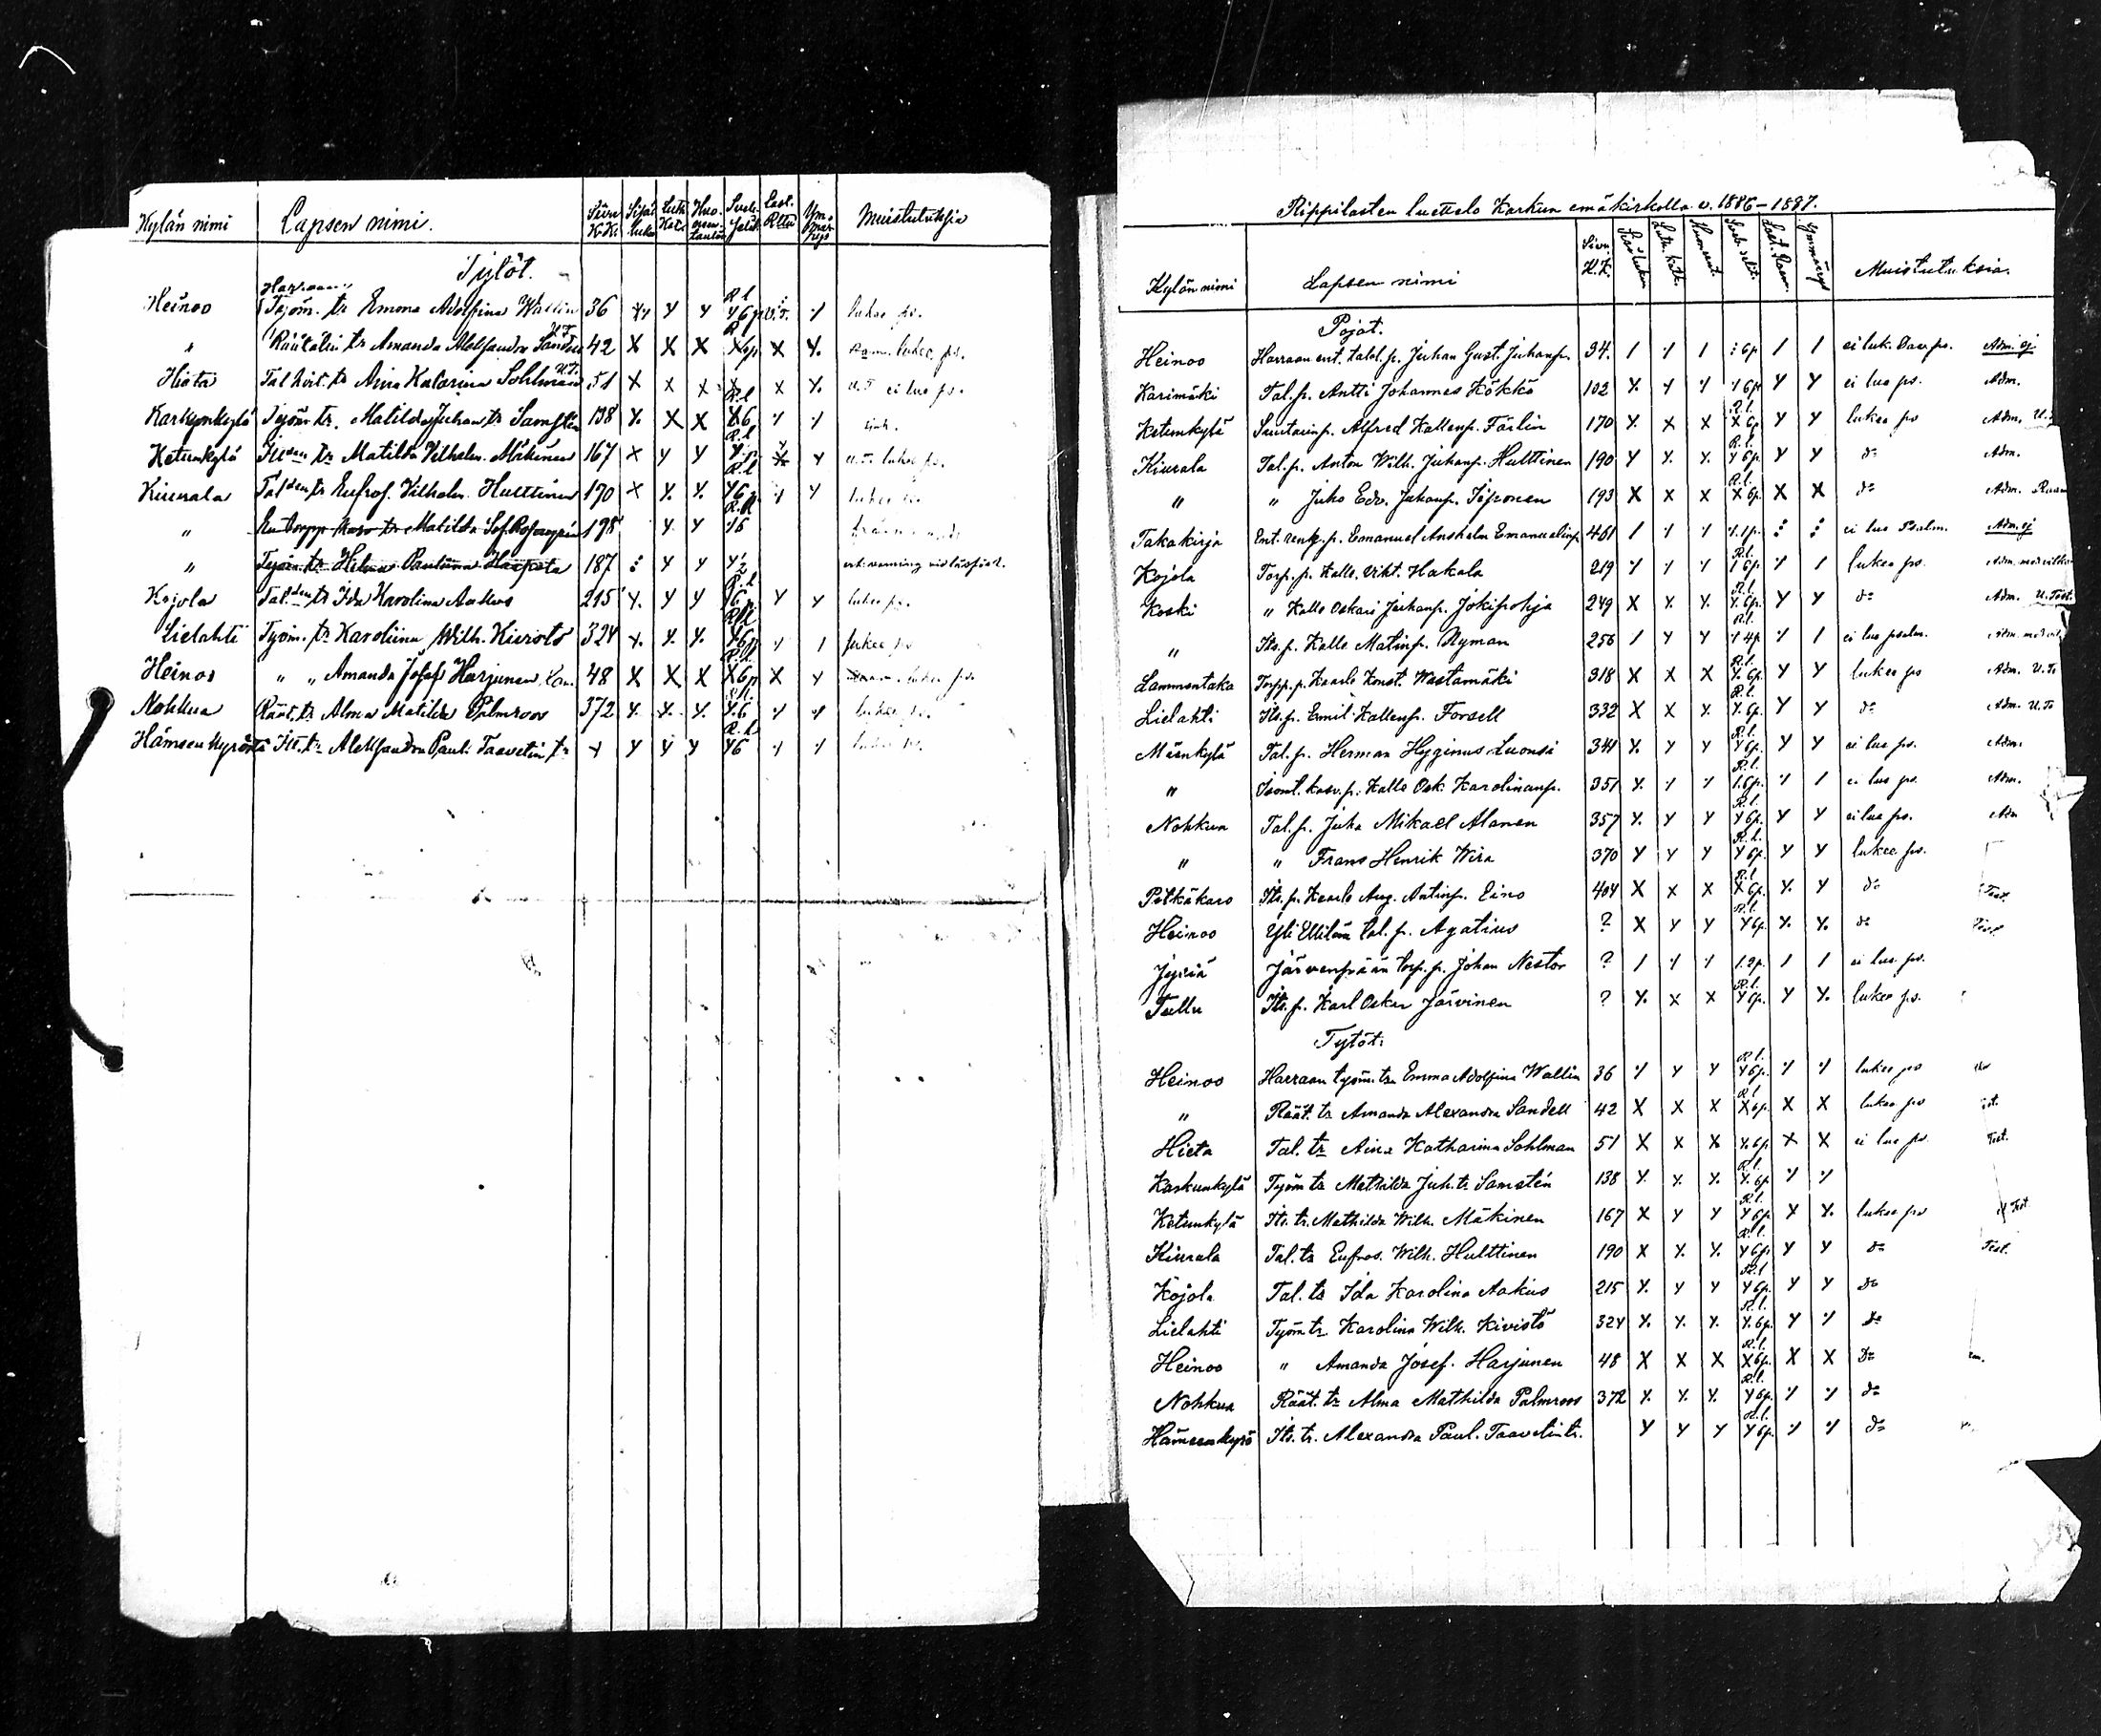 Kylän nimi Lapsen nimi. Sivu K.K. Sisä luku Luth. Kat. Huoneen taulu Svebi. Selit. Last. Raam. Ymmärrys Muistutuksia
Tytöt.
Harraan
Heinoo Työm. tr Emma Adolfina Wallin 36 lukee ps.
" Räätälin tr Amanda Aleksandra Sandell 42 X X X X 6p X Y. lukee ps.
Hieta Tal. tr Aina Katarina Sohlman 51 X X X X X Y. U.T. ei lue ps.
Karkunkylä Työm tr. Matilda Juhan tr Samstén 138 Y. X X X6
Ketunkylä Itsn. tr Matilda Vilhelm. Mäkinen 167 X Y Y U.T. lukee ps.
Kiurala Tal. tr Eufros. Vilhelm. Hulttinen 170 X Y. Y. Y6p Y lukee ps.
" Matilda Sof. 198 Y. Y
" Työm. tr. Helma Pauliina Haapata 187 : Y Y
Kojola Tal. tr Ida Karolina Aakus 215 Y. Y Y Y Y lukee ps.
Lielahti Työm. tr Karoliina Wilh. Kivistö 324 Y. Y. Y. Y6p Y / lukee ps
Heinoo " " Amanda Josef Harjunen 48 X X X X6p X Y lukee ps.
Nohkua Räät. tr Alma Matilda Palmroos 372 Y. Y. Y. Y.6 Y Y lukee ps.
Hämeenkyröstä Its. tr Aleksandra Paul. Taavetin tr Y Y Y Y Y6 lukee ps.
Rippilasten luettelo Karkun emäkirkolla v. 1886-1887.
Kylän nimi Lapsen nimi Sivu K.K. Sisä lukun Luth. katk. Huoneent. Sveb. selit. Last. Raam. Ymmärrys Muistutuksia.
Pojat.
Heinoo Harraan ent. tald. p. Juhan Gust. Juhanp. 34. / / / : 6p / / ei luk. Daw ps. Adm. ej
Karimäki Tal. p. Antti Johannes Kökkö 102 Y. Y Y Y 6p Y Y ei lue ps. Adm.
Ketunkylä Suutarinp. Alfred Kallenp. Färlin 170 Y. X X R.l. X 6p Y Y lukee ps Adm. U.
Kiurala Tal. p. Anton Wilh. Juhanp. Hulttinen 190 Y Y. Y. R.l. Y 6p. Y Y do Adm.
" " Juho Edv. Juhanp. 193 X X X R.l. X 6p. X X do Adm. Raam
Takakirja Ent. reng. p. Emanuel Anshelm Emanuelinp. 461 / Y Y Y. 1p. : : ei lue Psalm. Adm. ej
Kojola Torp. p. Kalle Vikt. Hakala 219 Y Y Y R.l. Y 6p. Y / lukee ps. Adm.
Koski " Kalle Oskari Juhanp. Jokipohja 249 X Y. Y. R.l. Y. 6p. Y Y do Adm. U. Test.
" Its. p. Kalle Matinp. Nyman 256 / Y Y R.l. Y 4p. Y / ei lue psalm.
Lammentaka Torpp. p. Kaarlo Konst. Wastamäki 318 X X X R.l. Y. 6p. Y Y lukee ps Adm. U. Te
Lielahti Its. p. Emil Kallenp. Forsell 332 X X Y. R.l. Y. 6p. Y Y do Adm. U. Te
Mäenkylä Tal. p. Herman Hyginus Luonsi 344 Y. Y Y R.l. Y 6p. Y Y ei lue ps. Adm.
" Kasv. p. Kalle Osk. Karolinanp. 351 Y. Y Y R.l. Y. 6p. Y / ei lue ps. Adm.
Nohkua Tal. p. Juha Mikael Alanen 357 Y. Y Y R.l. Y 6p. Y Y ei lue ps. Adm
" " Frans Henrik Wira 370 Y Y Y R.l. Y 6p. Y Y lukee ps.
Pitkäkaro Its. p. Kaarlo Aug. Antinp. Eino 404 X X X R.l. X 6p. Y. Y do Test.
Heinoo Yli Ellilän tal. p. Agatius ? X Y Y R.l. Y 6p. Y. Y. do Test.
Järvenpään torp. p. Johan Nestor ? / Y Y 1. 2p. / / ei lue ps.
Tullu Its. p. Karl Oskar Järvinen ? Y. X X R.l. Y 6p. Y Y. lukee ps.
Tytöt:
Heinoo Harraan työm. tr. Emma Adolfina Wallin 36 Y Y Y R.l. Y 6p. Y Y lukee ps
" Räät. tr Amanda Alexandra Sandell 42 X X X R.l. X 6p. X X lukee ps
Hieta Tal. tr Aina Katharina Sohlman 51 X X X Y. 6p X X ei lue ps. Test.
Karkunkylä Työm tr Mathilda Juh. tr Samstén 138 Y. Y. Y. R.l. Y. 6p Y Y
Ketunkylä Its. tr. Mathilda Wilh. Mäkinen 167 X Y Y R.l. Y 6p X Y. lukee ps Test
Kiurala Tal. tr Eufros. Wilh. Hulttinen 190 X Y. Y. R.l. Y 6p. Y Y do Test.
Kojola Tal. tr Ida Karolina Aakus 215 Y. Y Y R.l Y 6p. Y Y do
Lielahti Työm tr Karolina Wilh. Kivistö 324 Y. Y. Y. R.l. Y. 6p. Y Y do
Heinoo " Amanda Josef. Harjunen 48 X X X R.l. X 6p. X X do
Nohkua Räät. tr Alma Mathilda Palmroos 372 Y. Y. Y. R.l. Y 6p. Y Y do
Hämeenkyrö Its. tr. Alexandra Paul. Taavetin tr. Y Y Y R.l. Y 6p. Y Y do